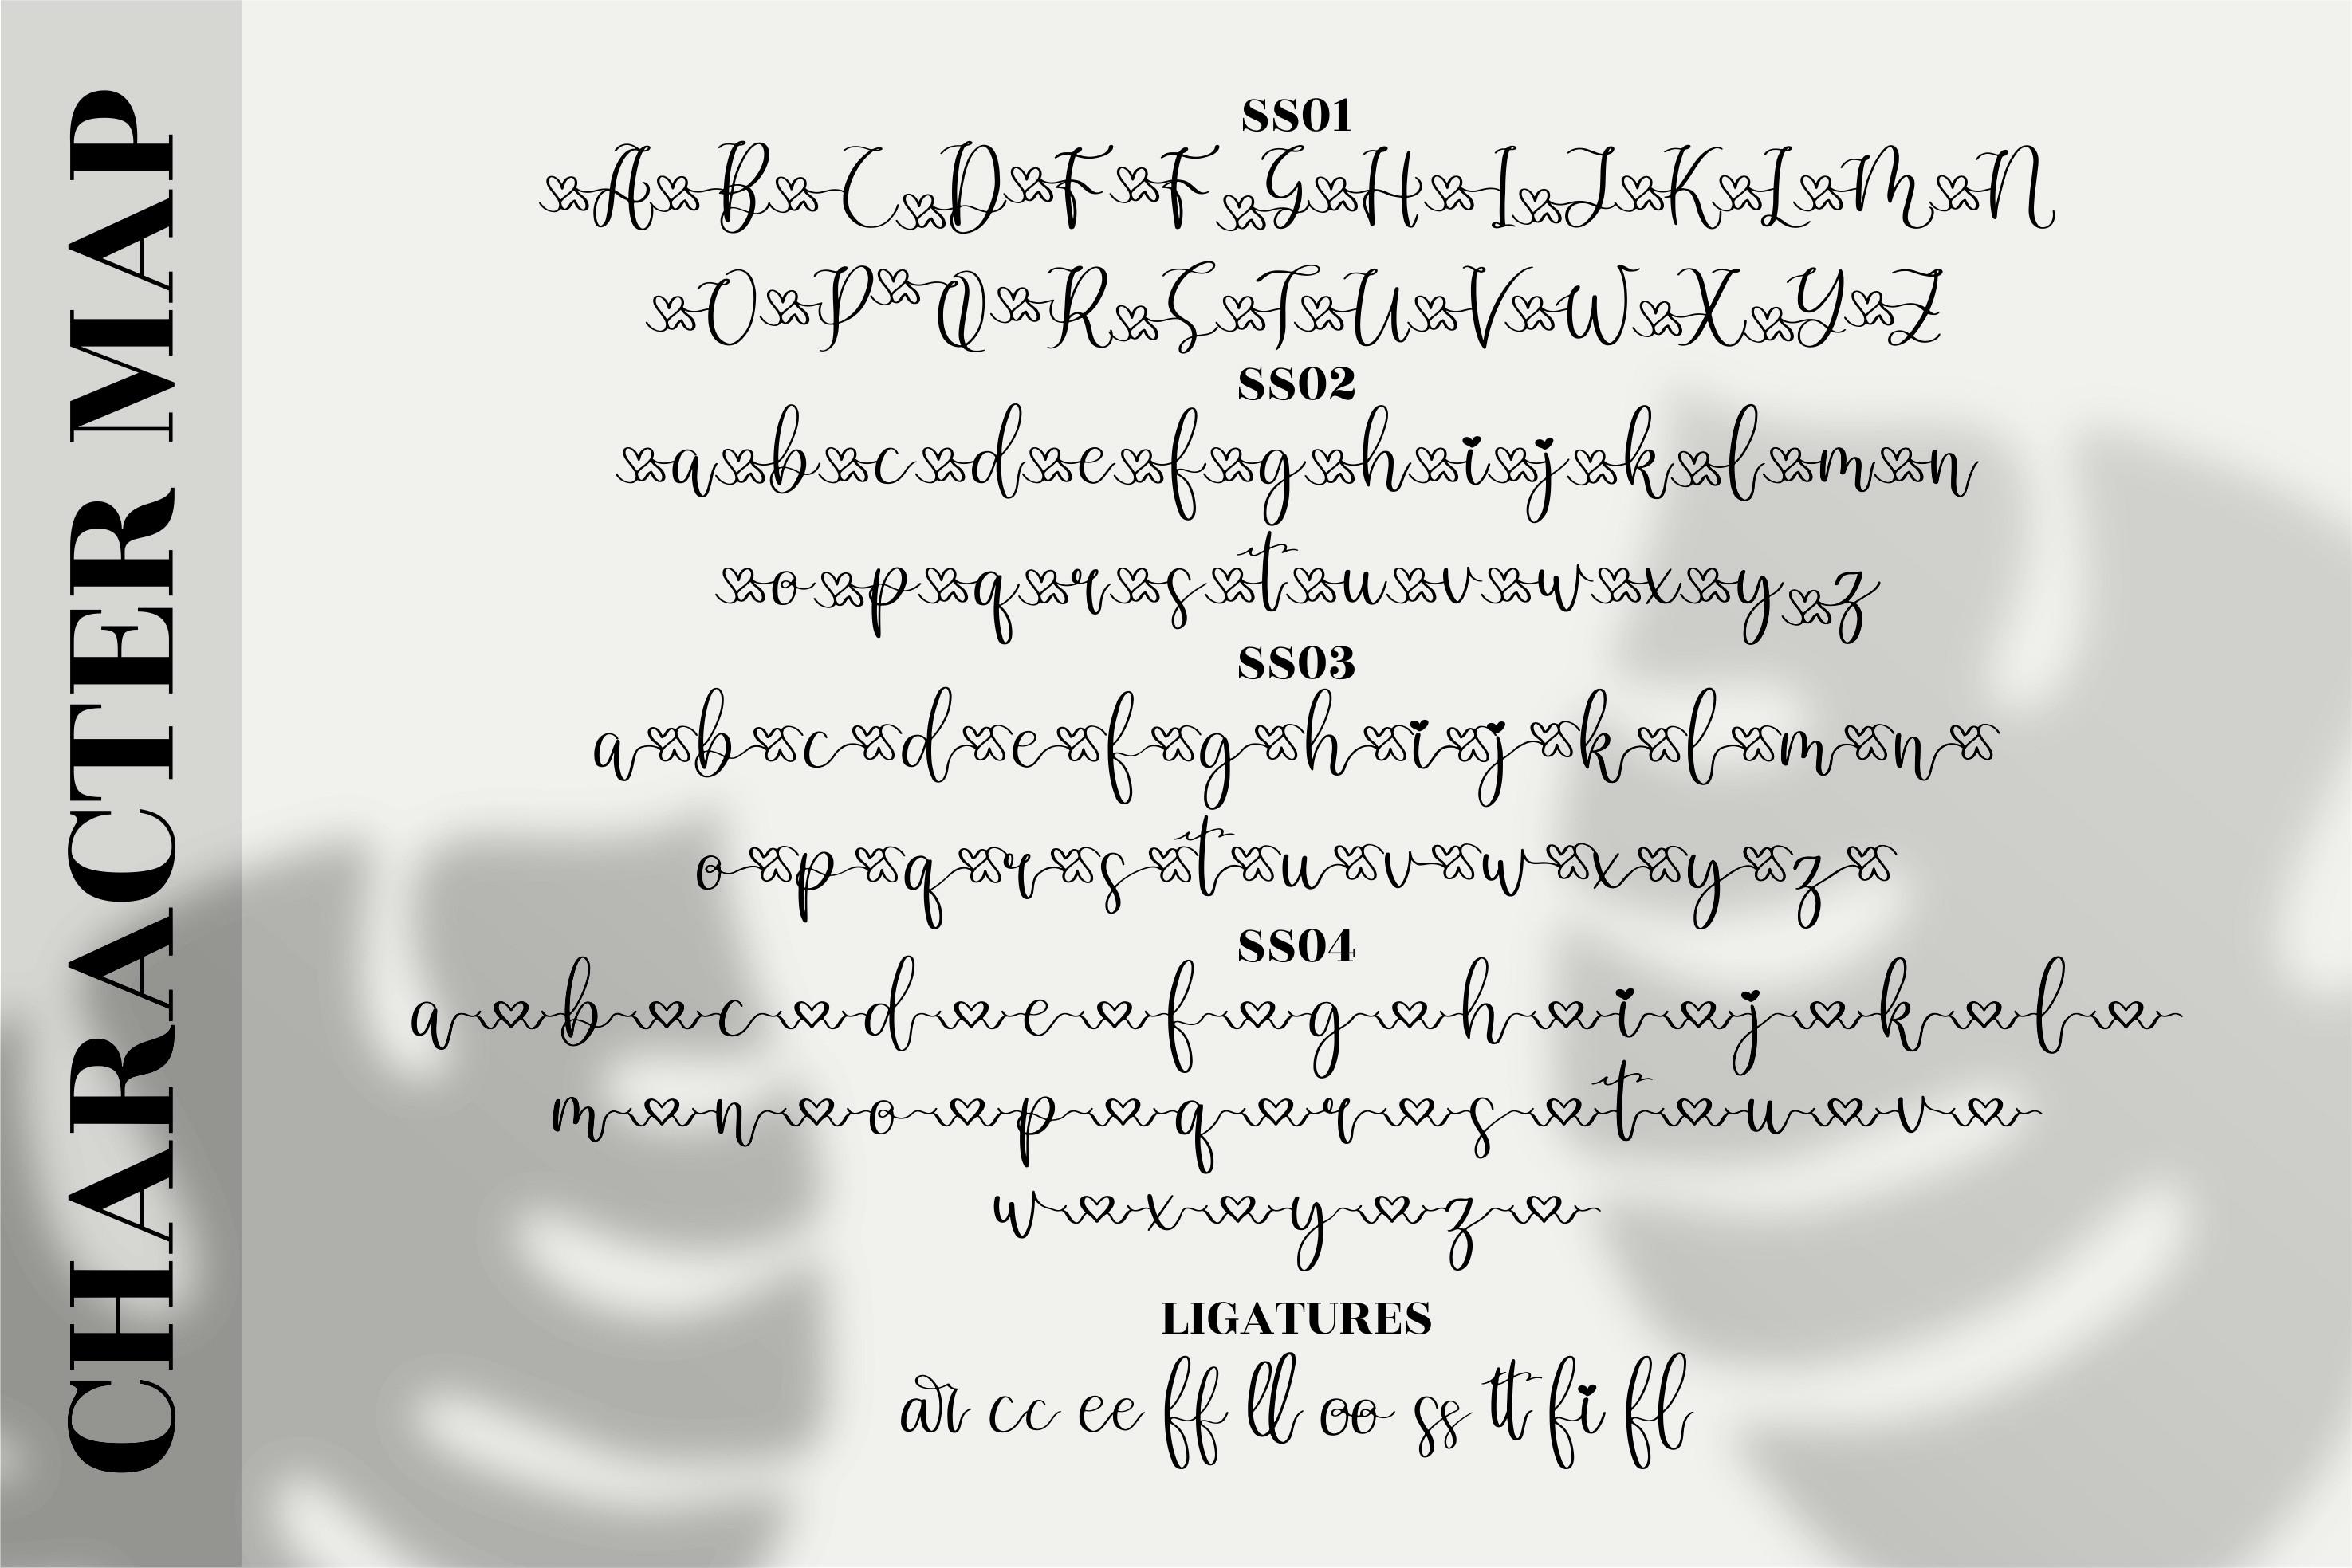 CHARACTER MAP
SS01
A B C D F F G H I J K L M N
O P Q R S T U V W X Y Z
SS02
a b c d e f g h i j k l m n
o p q r s t u v w x y z
SS03
a b c d e f g h i j k l m n
o p q r s t u v w x y z
SS04
a b c d e f g h i j k l
m n o p q r s t u v
w x y z
LIGATURES
ar cc ee ff ll oo ss tt fi fl